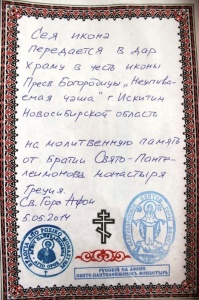 Сея икона
передается в дар
храму в честь иконы
Пресв. Богородицы „Неупива-
емая чаша" г. Искитим
Новосибирской область
на молитвенную память
от братии Свято-Панте-
леимонова монастыря
Греция.
Св. Гора Афон
5.05.2014
РУССКИЙ НА АФОНЕ
СВЯТО-ПАНТЕЛЕИМОНОВ МОНАСТЫРЬ